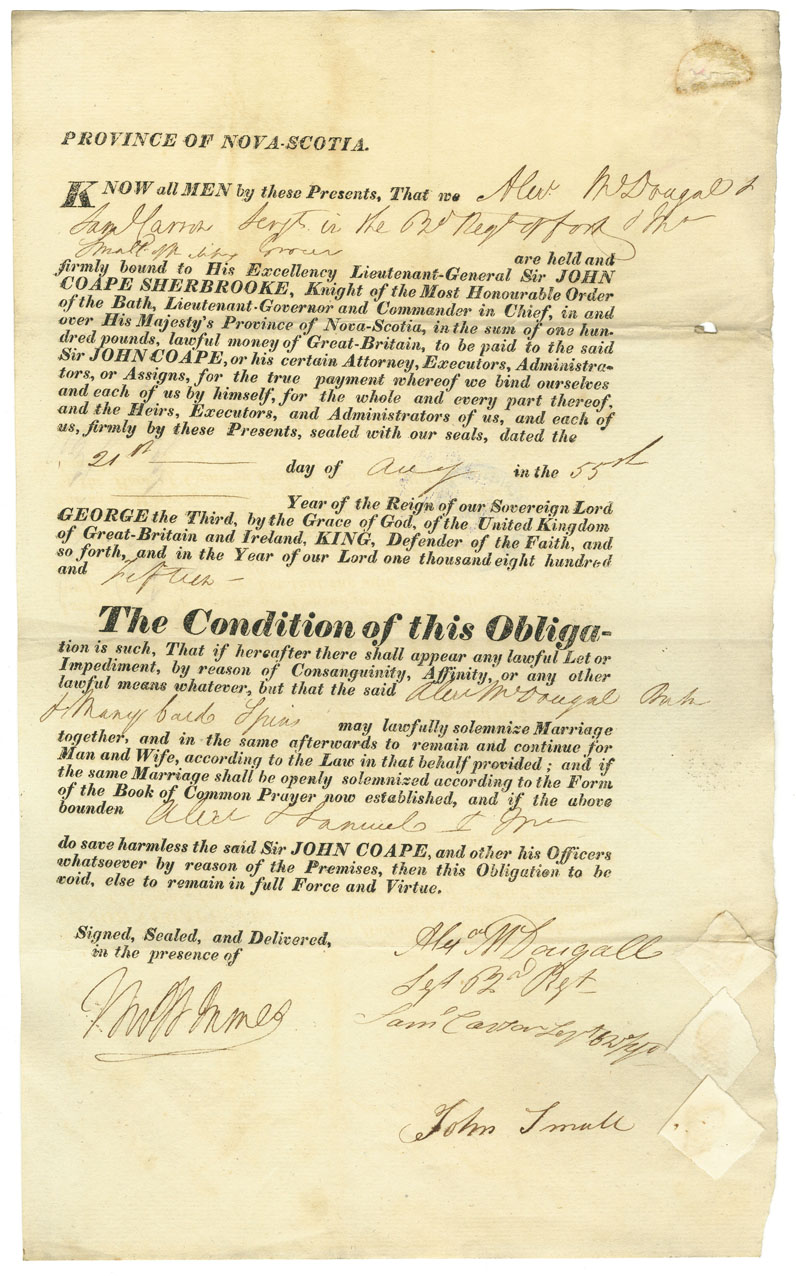 PROVINCE OF NOVA-SCOTIA.
KNOW all MEN by these Presents, That we Alexr McDougal &
Saml Carson Sergts in the 62d Regt of foot & Jno
Small of Grocer are held and
firmly bound to His Excellency Lieutenant-General Sir JOHN
COAPE SHERBROOKE, Knight of the Most Honourable Order
of the Bath, Lieutenant-Governor and Commander in Chief, in and
over His Majesty's Province of Nova-Scotia, in the sum of one hun-
dred pounds, lawful money of Great-Britain, to be paid to the said
Sir JOHN COAPE, or his certain Attorney, Executors, Administra-
tors, or Assigns, for the true payment whereof we bind ourselves
and each of us by himself, for the whole and every part thereof,
and the Heirs, Executors, and Administrators of us, and each of
us, firmly by these Presents, sealed with our seals, dated the
21st day of Augt in the 55th
Year of the Reign of our Sovereign Lord
GEORGE the Third, by the Grace of God, of the United Kingdom
of Great-Britain and Ireland, KING, Defender of the Faith, and
so forth, and in the Year of our Lord one thousand eight hundred
and fifteen
The Condition of this Obliga-
tion is such, That if hereafter there shall appear any lawful Let or
Impediment, by reason of Consanguinity, Affinity, or any other
lawful means whatever, but that the said Alexr McDougal
& Mary Spins may lawfully solemnize Marriage
together, and in the same afterwards to remain and continue for
Man and Wife, according to the Law in that behalf provided; and if
the same Marriage shall be openly solemnized according to the Form
of the Book of Common Prayer now established, and if the above
bounden Alexr & Samuel & Jno
do save harmless the said Sir JOHN COAPE, and other his Officers
whatsoever by reason of the Premises, then this Obligation to be
void, else to remain in full Force and Virtue.
Signed, Sealed, and Delivered,
in the presence of
Alexr McDougall
Sgt 62d Regt
Saml Carson Sergt 62d Regt
John Small